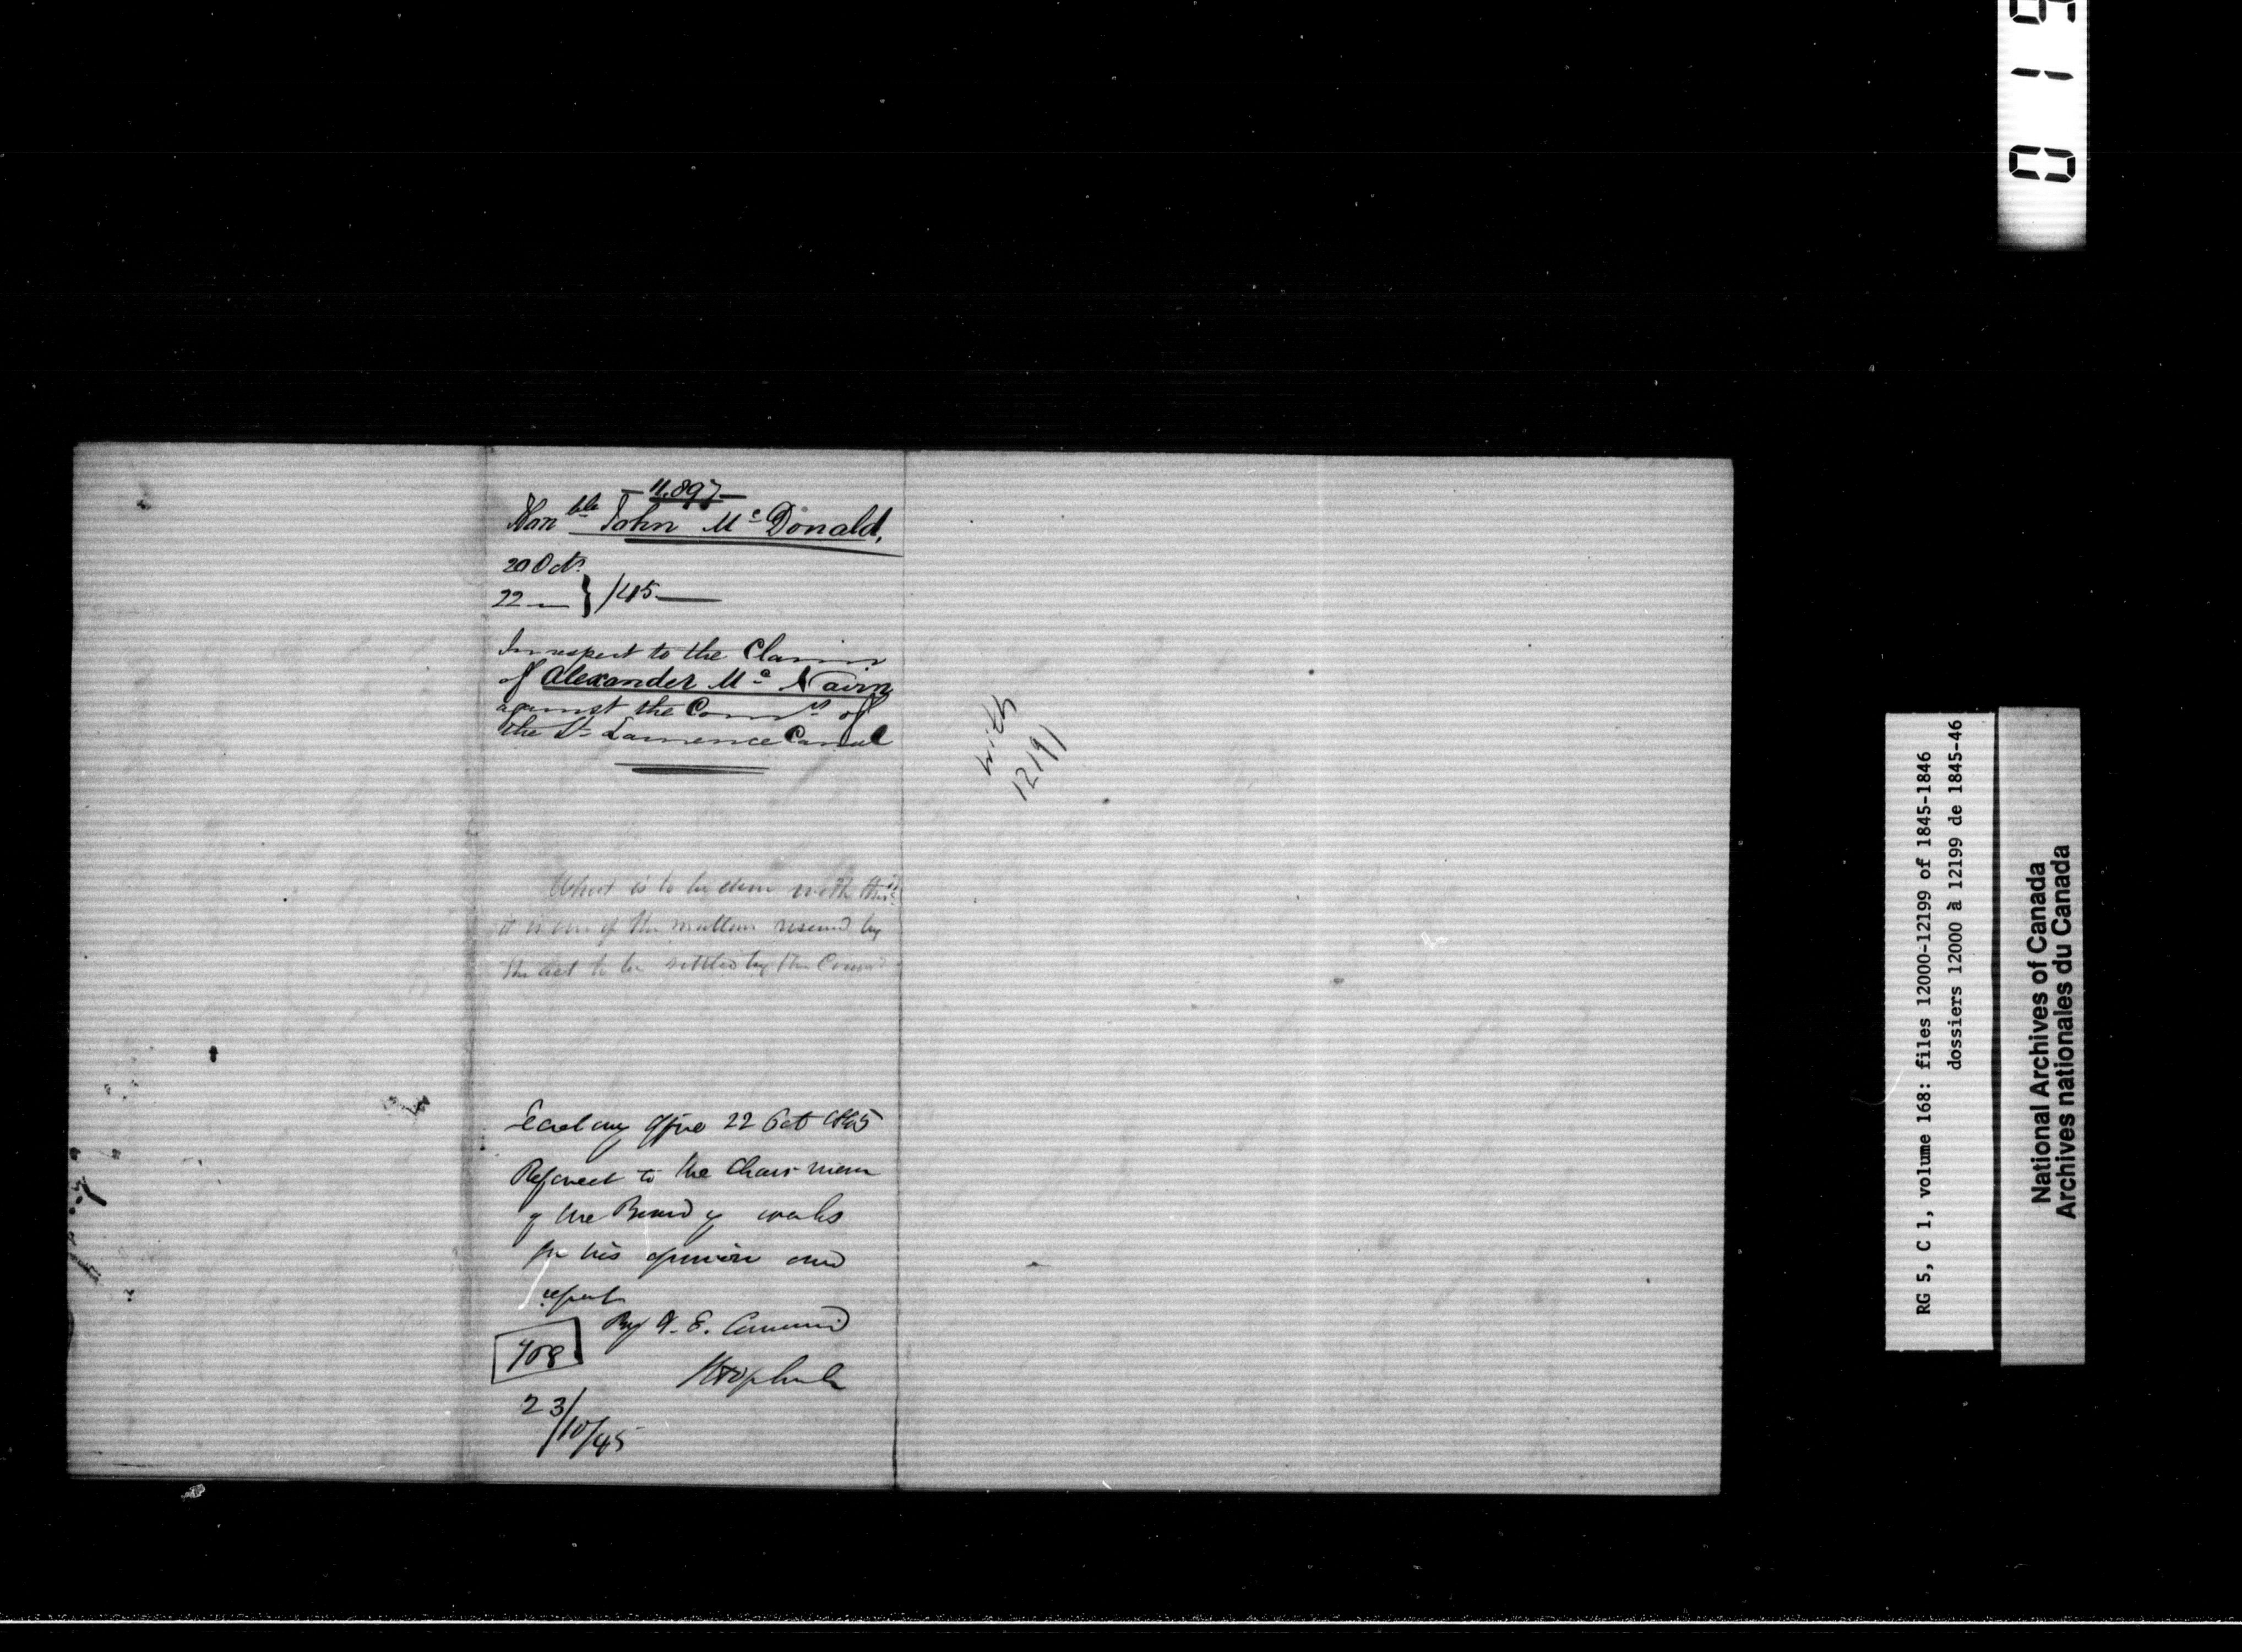 11.897
Honble John Mc Donald,
20 Octr
22 — } /45
In respect to the Claim
of Alexander Mc Nairn
against the Comrs of
the St Lawrence Canal
What is to be done with this
it is one of the matters reserved by
the act to be settled by the
Secretary Office 22 Oct 1845
Referred to the Chairman
of the Board of works
for his opinion and
report
By H. E. Command
408
23/10/45
with
12191
019
RG 5, C 1, volume 168: files 12000-12199 of 1845-1846
dossiers 12000 à 12199 de 1845-46
National Archives of Canada
Archives nationales du Canada